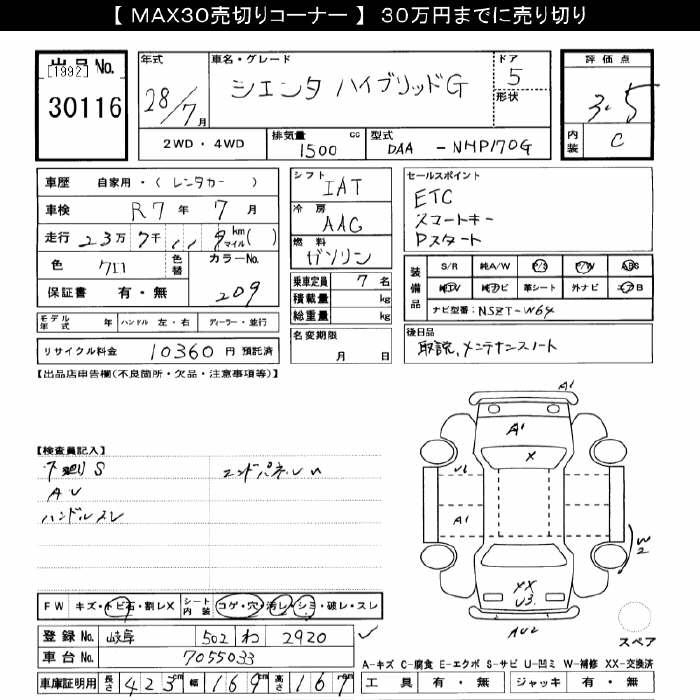 【 MAX30売切りコーナー 】 30万円までに売り切り
出品 No.
[1992]
30116
年式
28/7月
車名・グレード
シエンタ ハイブリッドG
ドア
5
形状
評価点
3.5
内装
C
2WD・4WD
排気量
1500 cc
型式
DAA -NHP170G
車歴 自家用・( レンタカー )
車検 R7年 7月
走行 23万 7千 km マイル( )
色 クロ
色替
カラーNo.
209
保証書 有・無
シフト
IAT
冷房
AAC
燃料
ガソリン
乗車定員 7名
積載量 kg
総重量 kg
セールスポイント
ETC
スマートキー
Pスタート
装備品
S/R 純A/W P/S P/W ABS
純TV 純ナビ 革シート 外ナビ エアB
ナビ型番: NSZT-W64
モデル年式 年 ハンドル 左・右 ディーラー・並行
名変期限
月 日
後日品
取説、メンテナンスノート
リサイクル料金 10360円 預託済
【出品店申告欄(不良箇所・欠品・注意事項等)】
【検査員記入】
下廻りS
AU
ハンドルスレ
エンドパネルU
A1
A1
X
U1
A1
W2
XX
U3
AU2
スペア
FW キズ・トビ石・割レX
シート内装 コゲ・穴・汚レ・シミ・破レ・スレ
登録 No. 岐阜 502 わ 2920
車台 No. 7055033
車庫証明用 長さ 423cm 幅 169cm 高さ 167cm
A-キズ C-腐食 E-エクボ S-サビ U-凹ミ W-補修 XX-交換済
工具 有・無 ジャッキ 有・無